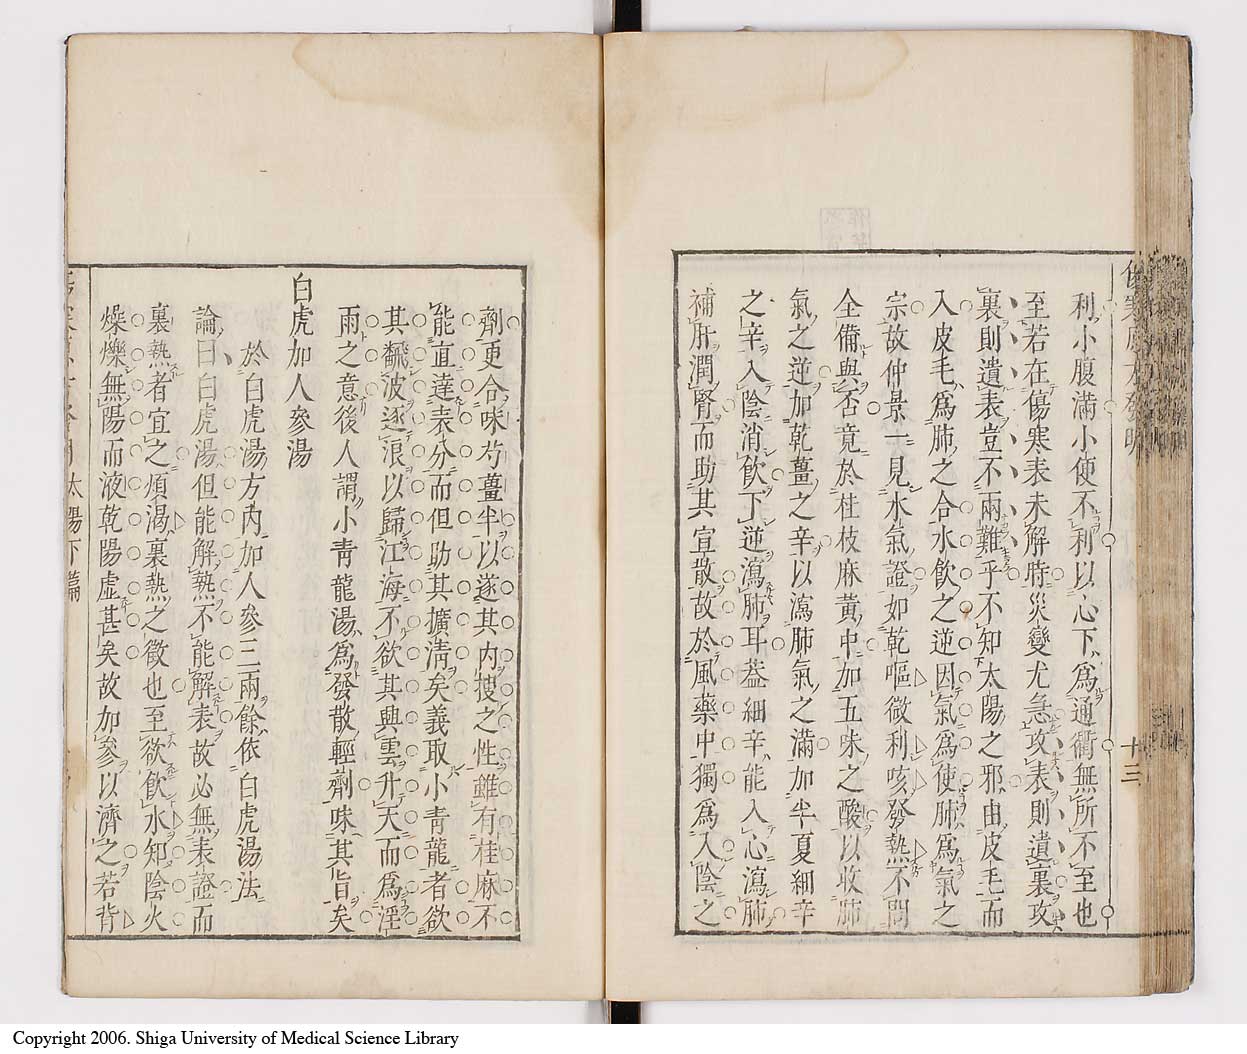 利小腹滿小便不利以心下爲通衢無所不至也
至若在傷寒表未解時災變尤急攻表則遺裏攻
裏則遺表豈不兩難乎不知太陽之邪由皮毛而
入皮毛爲肺之合水飮之逆因氣爲使肺爲氣之
宗故仲景一見水氣證如乾嘔微利咳發熱不問
全備與否竟於桂枝麻黃中加五味之酸以收肺
氣之逆加乾薑之辛以瀉肺氣之滿加半夏細辛
之辛入陰消飮下逆瀉肺耳葢細辛能入心瀉肺
補肝潤腎而助其宣散故於風藥中獨爲入陰之
十三
劑更合味芍薑半以遂其內搜之性雖有桂麻不
能直達表分而但助其擴淸矣義取小青龍者欲
其飜波逐浪以歸江海不欲其興雲升天而爲淫
雨之意後人謂小青龍湯爲發散輕劑味其旨矣
白虎加人參湯
於白虎湯方內加人參三兩餘依白虎湯法
論曰白虎湯但能解熱不能解表故必無表證而
裏熱者宜之煩渴裏熱之徵也至欲飮水知陰火
燥爍無陽而液乾陽虛甚矣故加參以濟之若背
太陽下篇
Copyright 2006. Shiga University of Medical Science Library